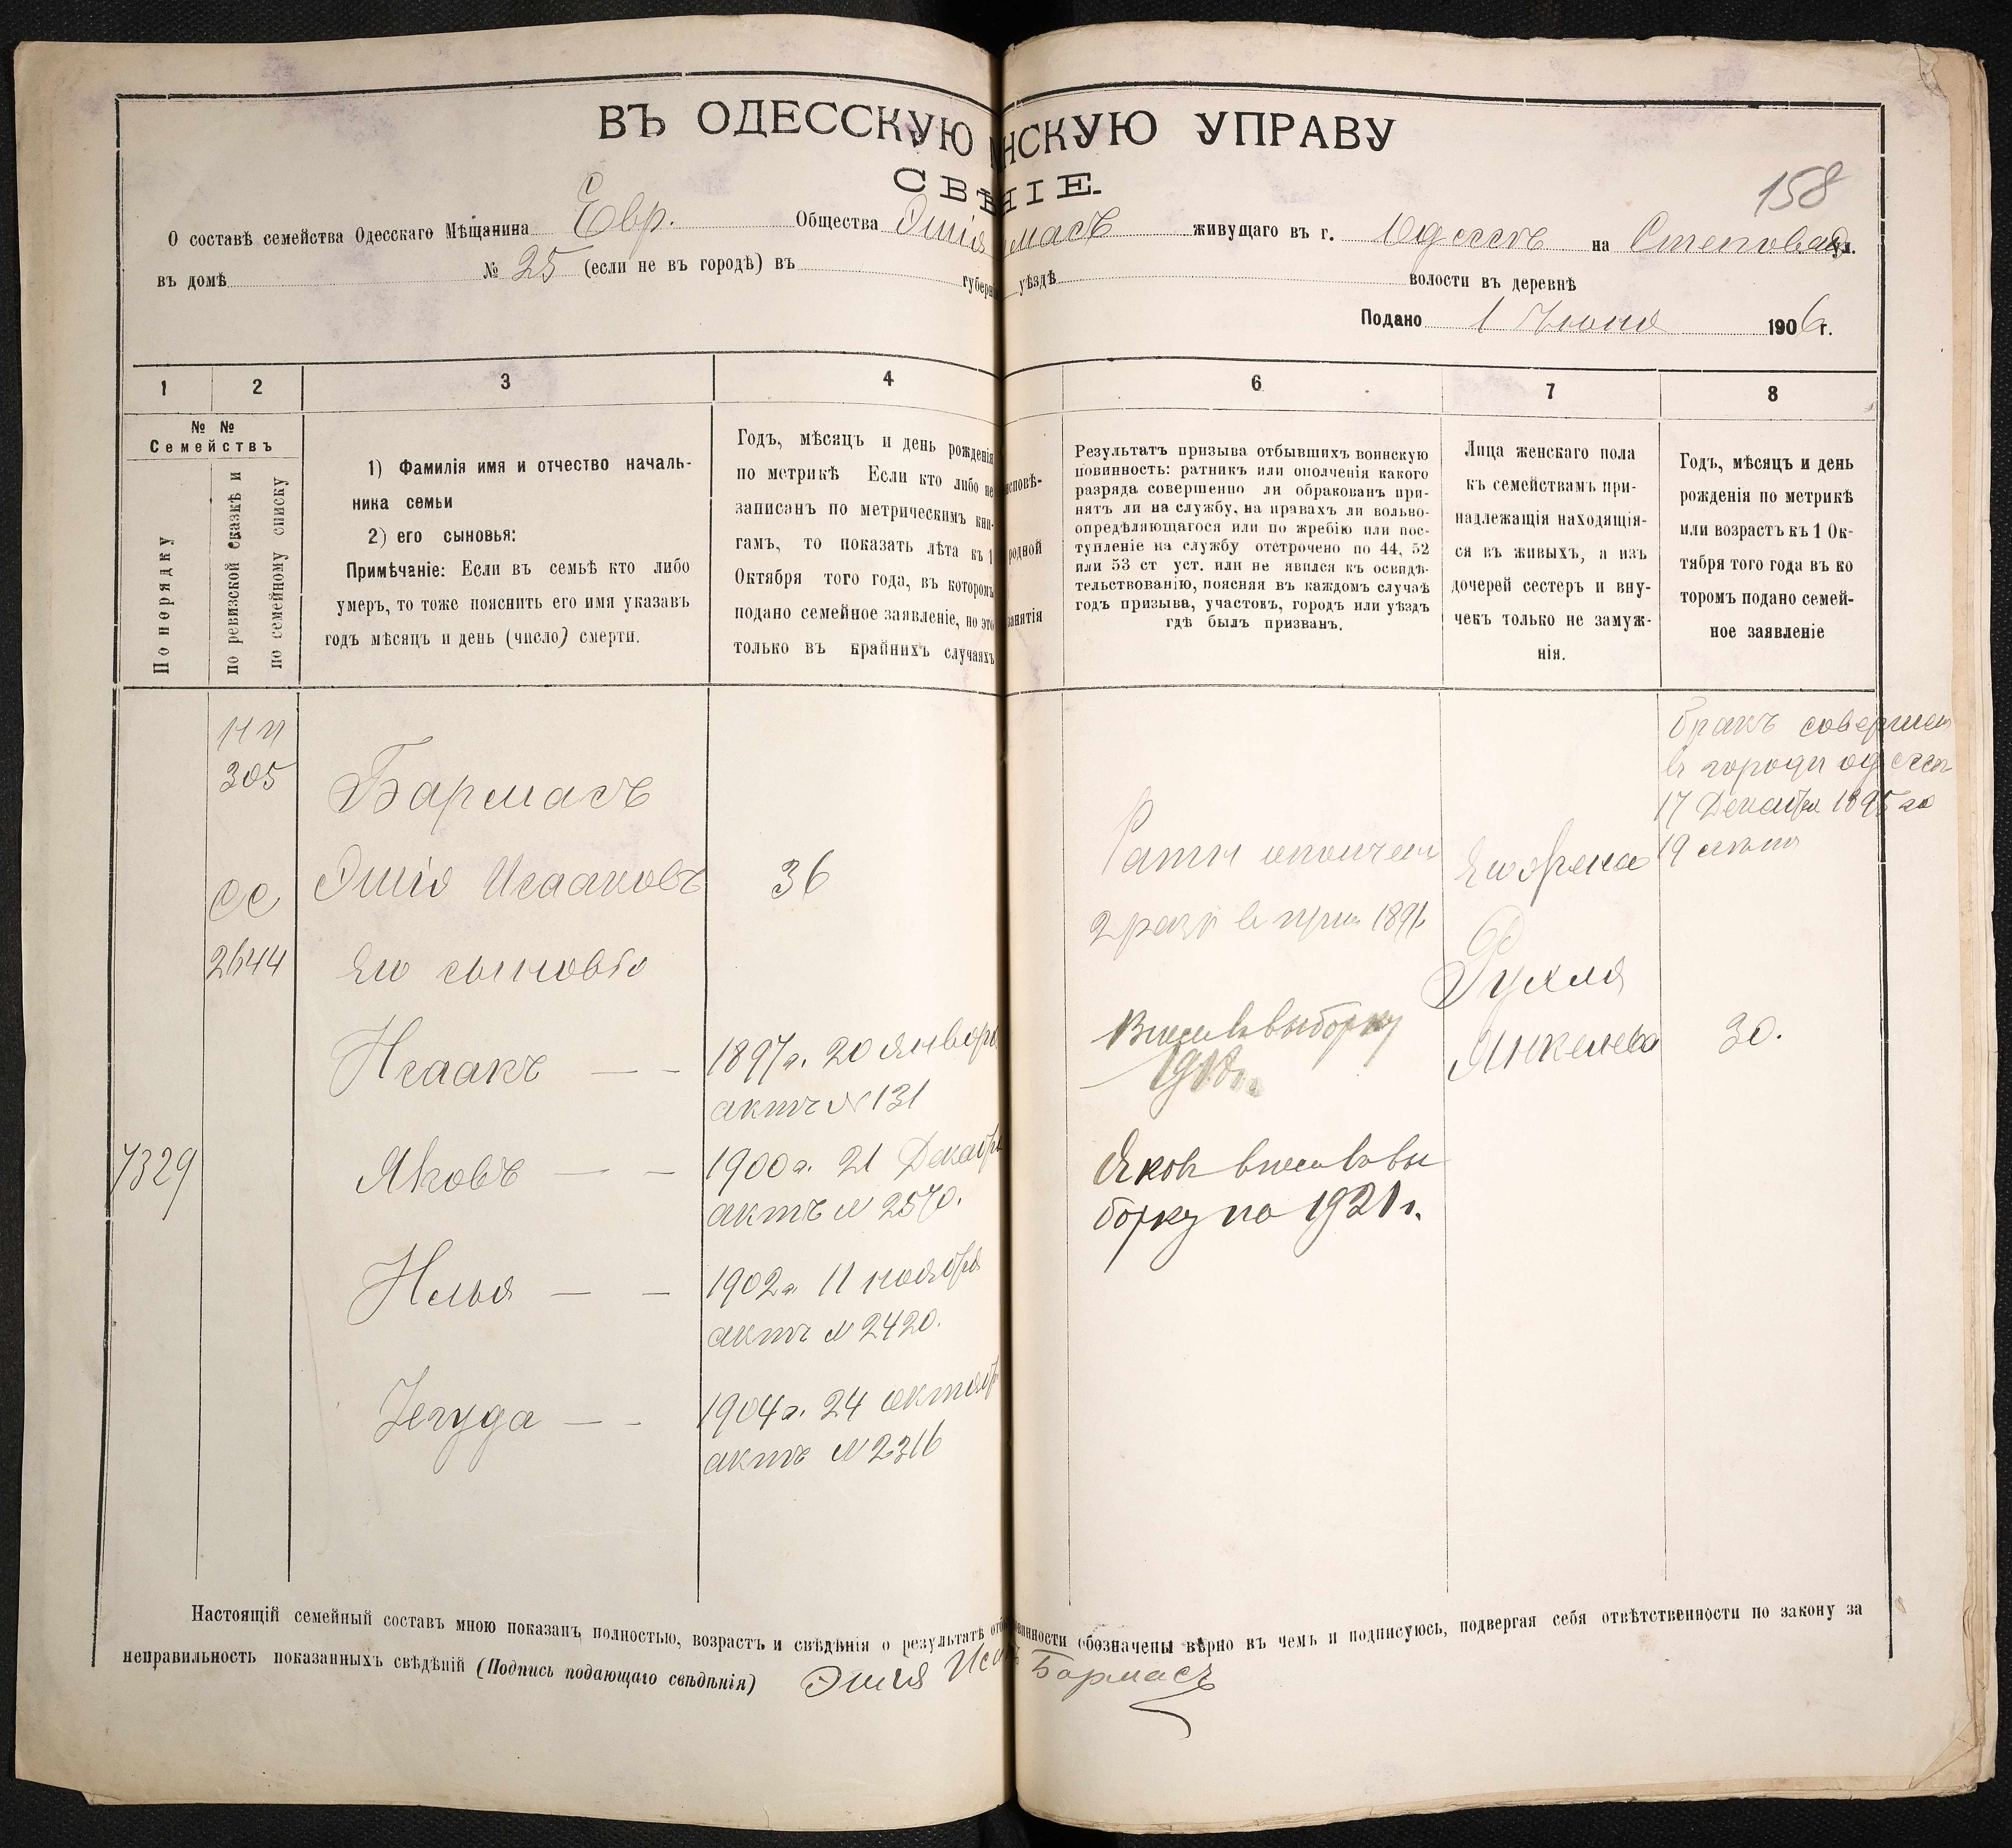 ВЪ ОДЕССКУЮ НСКУЮ УПРАВУ
СВѢ НІЕ.
158
О составѣ семейства Одесскаго Мѣщанина Евр. Общества Эшія масъ живущаго въ г. Одессѣ на Степовая ул.
въ домѣ № 25 (если не въ городѣ) въ губерн уѣздѣ волости въ деревнѣ
Подано 1 Июня 1906 г.
1 2 3 4 6 7 8
№ №
Семействъ
По порядку
по ревизской сказкѣ и
по семейному списку
1) Фамилія имя и отчество началь-
ника семьи
2) его сыновья:
Примѣчаніе: Если въ семьѣ кто либо
умеръ, то тоже пояснить его имя указавъ
годъ мѣсяцъ и день (число) смерти.
Годъ, мѣсяцъ и день рожденія
по метрикѣ Если кто либо не
записанъ по метрическимъ кни-
гамъ, то показать лѣта къ 1
Октября того года, въ которомъ
подано семейное заявленіе, но это
только въ крайнихъ случаяхъ
исповѣ-
родной
занятія
Результатъ призыва отбывшихъ воинскую
повинность: ратникъ или ополченія какого
разряда совершенно ли обракованъ при-
нятъ ли на службу, на правахъ ли вольно-
опредѣляющагося или по жребію или пос-
тупленіе на службу отстрочено по 44, 52
или 53 ст уст. или не явился къ освидѣ-
тельствованію, поясняя въ каждомъ случаѣ
годъ призыва, участокъ, городъ или уѣздъ
гдѣ былъ призванъ.
Лица женскаго пола
къ семействамъ при-
надлежащія находящія-
ся въ живыхъ, а изъ
дочерей сестеръ и вну-
чекъ только не замуж-
нія.
Годъ, мѣсяцъ и день
рожденія по метрикѣ
или возрастъ къ 1 Ок-
тября того года въ ко
торомъ подано семей-
ное заявленіе
305
Бармасъ
Эшія Исааковъ 36
2644
Его сыновья
Исаакъ — — 1897 г. 20 январ
актъ № 131
7329
Яковъ — — 1900 г. 21 Декабр
актъ № 2570.
Илья — — 1902 г. 11 ноября
актъ № 2420.
Іегуда — — 1904 г. 24 октябр
актъ № 2316
Ратн ополчен
2 раз в при 1891
Внесен в выборку
1918 г.
Яков внесен в вы
борку по 1921 г.
Его жена
Рухля
Янкелева 30.
бракъ совершен
в городи одессы
17 Декабря 1895 го
Настоящій семейный составъ мною показанъ полностью, возрастъ и свѣдѣнія о результатѣ отб винности обозначены вѣрно въ чемъ и подписуюсь, подвергая себя отвѣтственности по закону за
неправильность показанныхъ свѣдѣній (Подпись подающаго свѣдѣнія) Эшия Иса Бармасъ